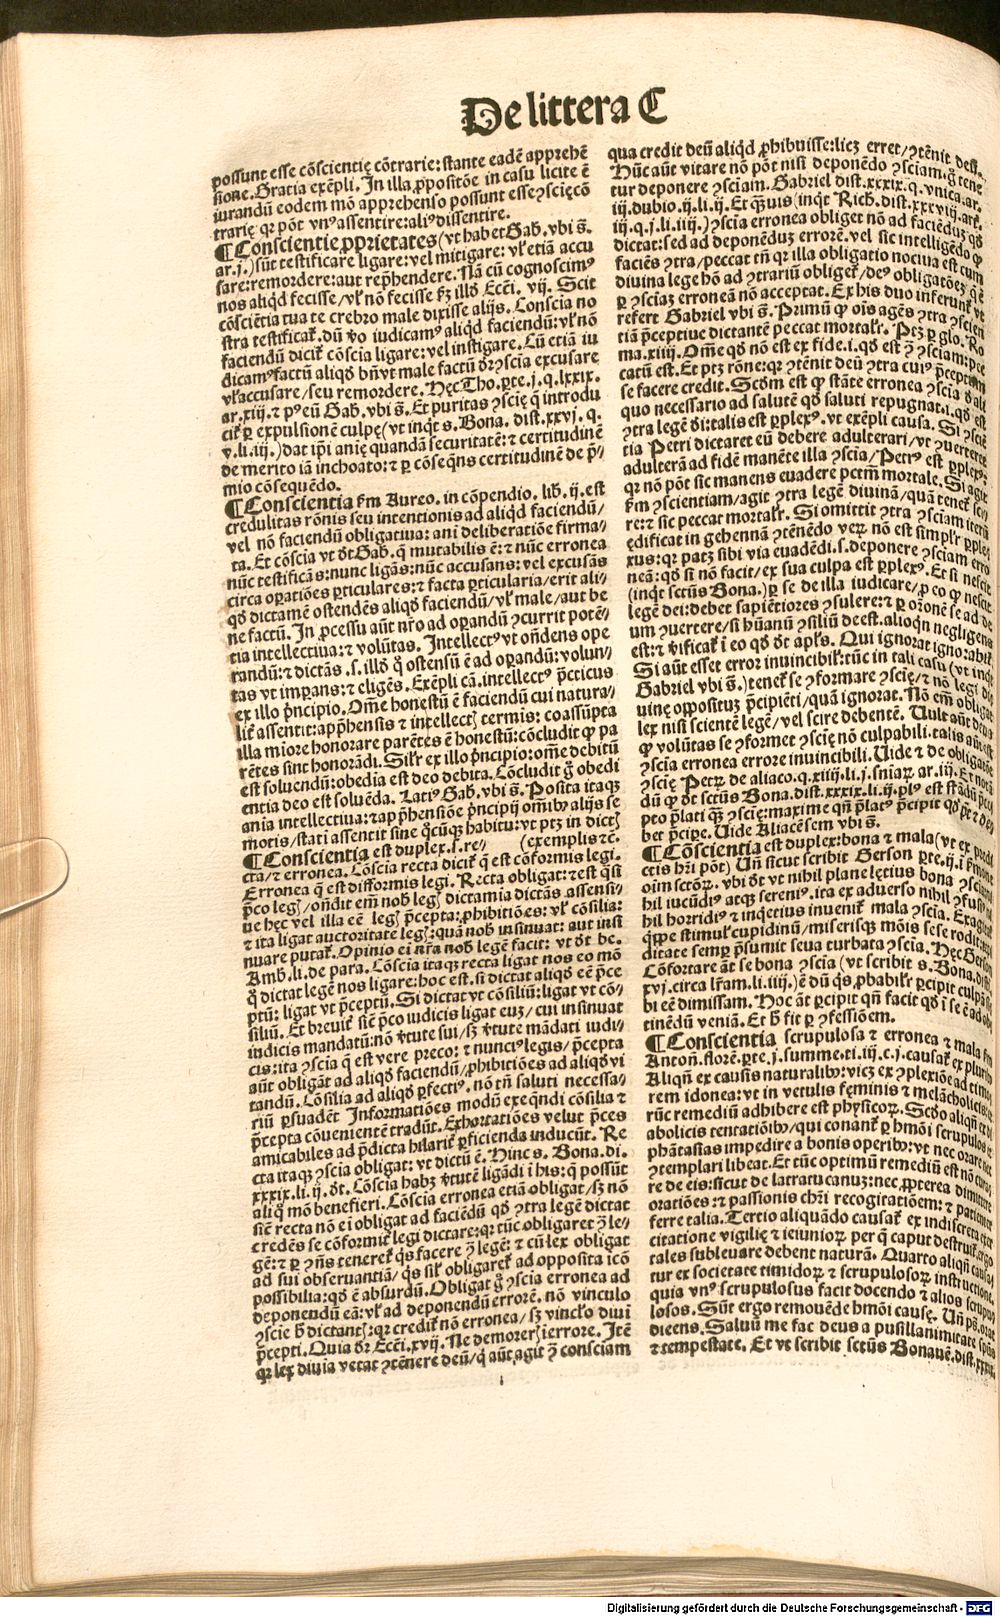 De littera C
possunt esse cõscientię cõtrarie: stante eadē apprehē
sione. Gratia exēpli. In illa ꝓpositõe in casu licite ē
iurandū eodem mõ apprehenso possunt esse ↄscięcõ
trarię qꝛ põt vnꝰ assentire: aliꝰ dissentire.
¶Conscientie ꝓprietates (vt habet Gab. vbi s̄.
ar. j.) sūt testificare ligare: vel mitigare: vl̓ etiā accu
sare: remordere: aut rep̄hendere. Nā cū cognoscimꝰ
nos aliqd fecisse / vl̓ nõ fecisse ẜm illḋ Ecci. vij. Scit
cõsciẽtia tua te crebro male dixisse alijs. Conscia no
stra testificat̓. dū ṽo iudicamꝰ aliqd faciendū: vl̓ nõ
faciendū dicit̓ cõscia ligare: vel instigare. Cū etiā iu
dicamꝰ factū aliqḋ bn̄ vt male factū dr̄ ↄscia excusare
vl̓ accusare / seu remordere. Hęc Tho. ꝑte. j. q. lxxix.
ar. xiij. ⁊ pꝰ eū Gab. vbi s̄. Et puritas ↄscię q̄ introdu
cit̓ ꝑ expulsionē culpę (vt inqt s. Bona. dist. xxvj. q.
v. li. iij.) dat ip̄i anię quandā securitatē: ⁊ certitudinē
de merito iā inchoato: ⁊ ꝑ cõseq̄ns certitudinē de p̄-
mio cõsequēdo.
¶Conscientia ẜm Aureo. in cõpendio. lib. ij. est
credulitas rõnis seu intentionis ad aliqd faciendū /
vel nõ faciendū obligatiua: ani deliberatiõe firma-
ta. Et cõscia vt ḋt Gab. q̄ mutabilis ē: ⁊ nūc erronea
nūc testificās: nunc ligās: nūc accusans: vel excusās
circa oꝑatiões ꝑticulares: ⁊ facta ꝑticularia / erit ali-
qḋ dictamē ostendēs aliqḋ faciendū / vl̓ male / aut be
ne factū. In ꝓcessu aūt nr̄o ad oꝑandū ↄcurrit potē-
tia intellectiua: ⁊ volūtas. Intellectꝰ vt oñdens ope
randū: ⁊ dictās. s. illḋ q̄ ostensū ē ad oꝑandū: volun-
tas vt imꝑans: ⁊ eligēs. Exēpli cā. intellectꝰ p̄cticus
ex illo p̄ncipio. Om̄e honestū ē faciendū cui natura-
lit̓ assentit: app̄hensis ⁊ intellectꝭ termis: coassūpta
illa miore honorare parētes ē honestū: cõcludit ꝙ pa
rētes sint honorādi. Silr̓ ex illo p̄ncipio: om̄e debitū
est soluendū: obedia est deo debita. Cõcludit g̊ obedi
entia deo est soluēda. Latiꝰ Gab. vbi s̄. Posita itaqꝫ
ania intellectiua: ⁊ app̄hensiõe p̄ncipij om̄ibꝰ alijs se
motis / stati assentit sine q̄cūqꝫ habitu: vt ptꝫ in dictꝭ
(exemplis ⁊c.
¶Conscientia est duplex. s. re
cta / ⁊ erronea. Cõscia recta dicit̓ q̄ est cõformis legi.
Erronea q̄ est difformis legi. Recta obligat: ⁊ est qsi
p̄co legꝭ / oñdit em̄ nob̓ legꝭ dictamia dictās assensi-
ue hęc vel illa eē legꝭ p̄cepta: ꝓhibitiões: vl̓ cõsilia:
⁊ ita ligat auctoritate legꝭ: quā nob̓ insinuat: aut insi
nuare putat̓. Opinio ei nr̄a nob̓ legē facit: vt ḋt be.
Amb. li. de para. Cõscia itaqꝫ recta ligat nos eo mõ
q̄ dictat legē nos ligare: hoc est. si dictat aliqḋ eē p̄ce
ptū: ligat vt p̄ceptū. Si dictat vt cõsiliū: ligat vt cõ-
siliū. Et breuit̓ siē p̄co iudicis ligat eūꝫ / cui insinuat
iudicis mandatū: nõ ṽtute sui / sꝫ ṽtute mādati iudi-
cis: ita ↄscia q̄ est vere preco: ⁊ nunciꝰ legis / p̄cepta
aūt obligāt ad aliqḋ faciendū / ꝓhibitiões ad aliqḋ vi
tandū. Cõsilia ad aliqḋ ꝑfectiꝰ. nõ tn̄ saluti necessa-
riū ꝑsuadēt Informatiões modū exeq̄ndi cõsilia ⁊
p̄cepta cõuenientē tradūt. Exhortatiões velut p̄ces
amicabiles ad p̄dicta hilarit̓ ꝑficienda inducūt. Re
cta itaqꝫ ↄscia obligat: vt dictū ē. Hinc s. Bona. di.
xxxix. li. ij. ḋt. Cõscia habꝫ ṽtutē ligādi ī his: q̄ possūt
aliq̄ mõ benefieri. Cõscia erronea etiā obligat / sꝫ nõ
siē recta nõ ei obligat ad faciēdū qḋ ↄtra legē dictat
credēs se cõformit̓ legi dictare: qꝛ tūc obligaret ↄ̄ le-
gē: ⁊ ꝑ ↄ̄ns teneret̓ q̄s facere ↄ̄ legē: ⁊ cū lex obligat
ad sui obseruantiā / q̄s sil̓ obligaret̓ ad opposita icõ
possibilia: qḋ ē absurdū. Obligat g̊ ↄscia erronea ad
deponendū eā: vl̓ ad deponendū errorē. nõ vinculo
ↄscie h̄ dictantꝭ: qꝛ credit̓ nõ erronea / sꝫ vinclo diui
p̄cepti. Quia dr̄ Ecci. xvij. Ne demorerꝭ ī errore. Itē
qꝛ lex diuia vetat ↄtēnere deū / q̄ aūt agit ↄ̄ consciam
qua credit deū aliqd ꝓhibuisse: licꝫ erret / ↄtēnit deū.
Hūc aūt vitare nõ põt nisi deponēdo ↄsciam. g̊ tene
tur deponere ↄsciam. Gabriel dist. xxxix. q. vnica. ar.
iij. dubio. ij. li. ij. Et q̄uis (inqt Rich. dist. xxxviij. art.
iij. q. j. li. iij.) ↄscia erronea obliget nõ ad faciēduꝫ qḋ
dictat: sed ad deponēduꝫ errorē. vel sic intelligēdo ꝙ
faciēs ↄtra / peccat tn̄ qꝛ illa obligatio nociua est cum
diuina lege hõ ad ↄtrariū obliget̓ / deꝰ obligatõeꝫ q̄ ē
ꝑ ↄsciaꝫ erroneā nõ acceptat. Ex his duo inferunt̓ vt
refert Gabriel vbi s̄. Primū ꝙ oīs agēs ↄtra ↄscien
tiā p̄ceptiue dictantē peccat mortalr̓. Ptꝫ ꝑ glo. Ro
ma. xiiij. Om̄e qḋ nõ est ex fide. i. qḋ est ↄ̄ ↄsciam: pec
catū est. Et ptꝫ rõne: qꝛ ↄtēnit deū ↄtra cuiꝰ p̄ceptum
se facere credit. Scḋm est ꝙ stāte erronea ↄscia ḋ ali
quo necessario ad salutē qḋ saluti repugnat. i. qḋ est
ↄtra legē di: talis est ꝑplexꝰ. vt exēpli causa. Si ↄsciē
tia Petri dictaret eū debere adulterari / vt ↄuertere
adulterā ad fidē manēte illa ↄscia / Petrꝰ est ꝑplexꝰ:
qꝛ nõ põt sic manens euadere pctm̄ mortale. Si agit
ẜm ↄscientiam / agit ↄtra legē diuinā / quā tenet̓ scī-
re: ⁊ sic peccat mortalr̓. Si omittit ↄtra ↄsciam iterū
ędificat in gehennā ↄtēnēdo veꝝ nõ est simplr̓ ꝑple
xus: qꝛ patꝫ sibi via euadēdi. s. deponere ↄsciam erro
neā: qḋ si nõ facit / ex sua culpa est ꝑplexꝰ. Et si nescit
(inqt sctūs Bona.) ꝑ se de illa iudicare / ꝓ eo ꝙ nescit
legē dei: debet sapiētiores ↄsulere: ⁊ ꝑ or̃onē se ad de
um ↄuertere / si hūanū ↄsiliū deest. alioqn negligens
est: ⁊ ṽificat̓ ī eo qḋ ḋt apl̓s. Qui ignorat ignorabit̓.
Si aūt esset error inuincibil̓: tūc in tali casu (vt inqt
Gabriel vbi s̄.) tenet̓ se ↄformare ↄscię / ⁊ nõ legi di
uinę oppositūꝫ p̄cipiēti / quā ignorat. Nõ em̄ obligat
lex nisi scientē legē / vel scire debentē. Uult aūt deus
ꝙ volūtas se ↄformet ↄscię nõ culpabili. talis aūt est
ↄscia erronea errore inuincibili. Uide ⁊ de obligatõe
ↄscię Petꝝ de aliaco. q. xiiij. li. j. sniaꝝ ar. iij. Et notā
dū ꝙ ḋt sctūs Bona. dist. xxxix. li. ij. plꝰ est stādū p̄ce
pto p̄lati qꝫ ↄscię: maxime qn̄ p̄latꝰ p̄cipit qḋ p̄t ⁊ de
bet p̄cipe. Uide Aliacēsem vbi s̄.
¶Cõscientia est duplex: bona ⁊ mala (vt ex predi
ctis hr̄i põt) Un̄ sicut scribit Gerson ꝑte. ij. ī ẜmone
oīm sctoꝝ. vbi ḋt vt nihil plane lętius bona ↄscia: ni
hil iucūdiꝰ atqꝫ sereniꝰ. ita ex aduerso nihil ↄfusiꝰ ni
hil horridiꝰ ⁊ inqetius inuenit̓ mala ↄscia. Exagitat
q̄ppe stimul̓ cupidinū / miserisqꝫ mõis se se rodit: tur
ditate semꝑ p̄sumit seua turbata ↄscia. Hęc Gerson
Cõfortare āt se bona ↄscia (vt scribit s. Bona. dist.
xvj. circa lr̄am. li. iiij.) ē dū q̄s ꝓbabilr̓ ꝑcipit culpā si
bi eē dimissam. Hoc āt ꝑcipit qn̄ facit qḋ ī se ē ad ob
tinēdū veniā. Et h̄ fit ꝑ ↄfessiõem.
¶Conscientia scrupulosa ⁊ erronea ⁊ mala ẜm
Anton̄. florē. ꝑte. j. summe. ti. iij. c. j. causat̓ ex pluribꝰ
Aliqn̄ ex causis naturalibꝰ: vicꝫ ex ↄplexiõe ad timo
rem idonea: vt in vetulis fęminis ⁊ melācholicis: ⁊ ho
rūc remediū adhibere est physicoꝝ. Scḋo aliqn̄ ex di
abolicis tentatiõibꝰ / qui conant̓ ꝑ hmõi scrupulos ⁊
phātasias impedire a bonis operibꝰ: vt nec orare nec
ↄtemplari libeat. Et tūc optimū remediū est nõ cura
re de eis: sicut de latratu canuꝫ: nec ꝓpterea dimittere
oratiões: ⁊ passionis chr̄i recogitatiõem: ⁊ patienter
ferre talia. Tertio aliquādo causat̓ ex indiscreta exer
citatione vigilię ⁊ ieiunioꝝ per q̄ caput destruit̓. ergo
tales subleuare debent naturā. Quarto aliqn̄ causa
tur ex societate timidoꝝ ⁊ scrupulosoꝝ instructione.
quia vnꝰ scrupulosus facit docendo ⁊ alios scrupu
losos. Sūt ergo remouēde hmõi causę. Un̄ ps̄. orat
dicens. Saluū me fac deus a pusillanimitate spūs
⁊ tempestate. Et vt scribit sctūs Bonauē. dist. xxxix.